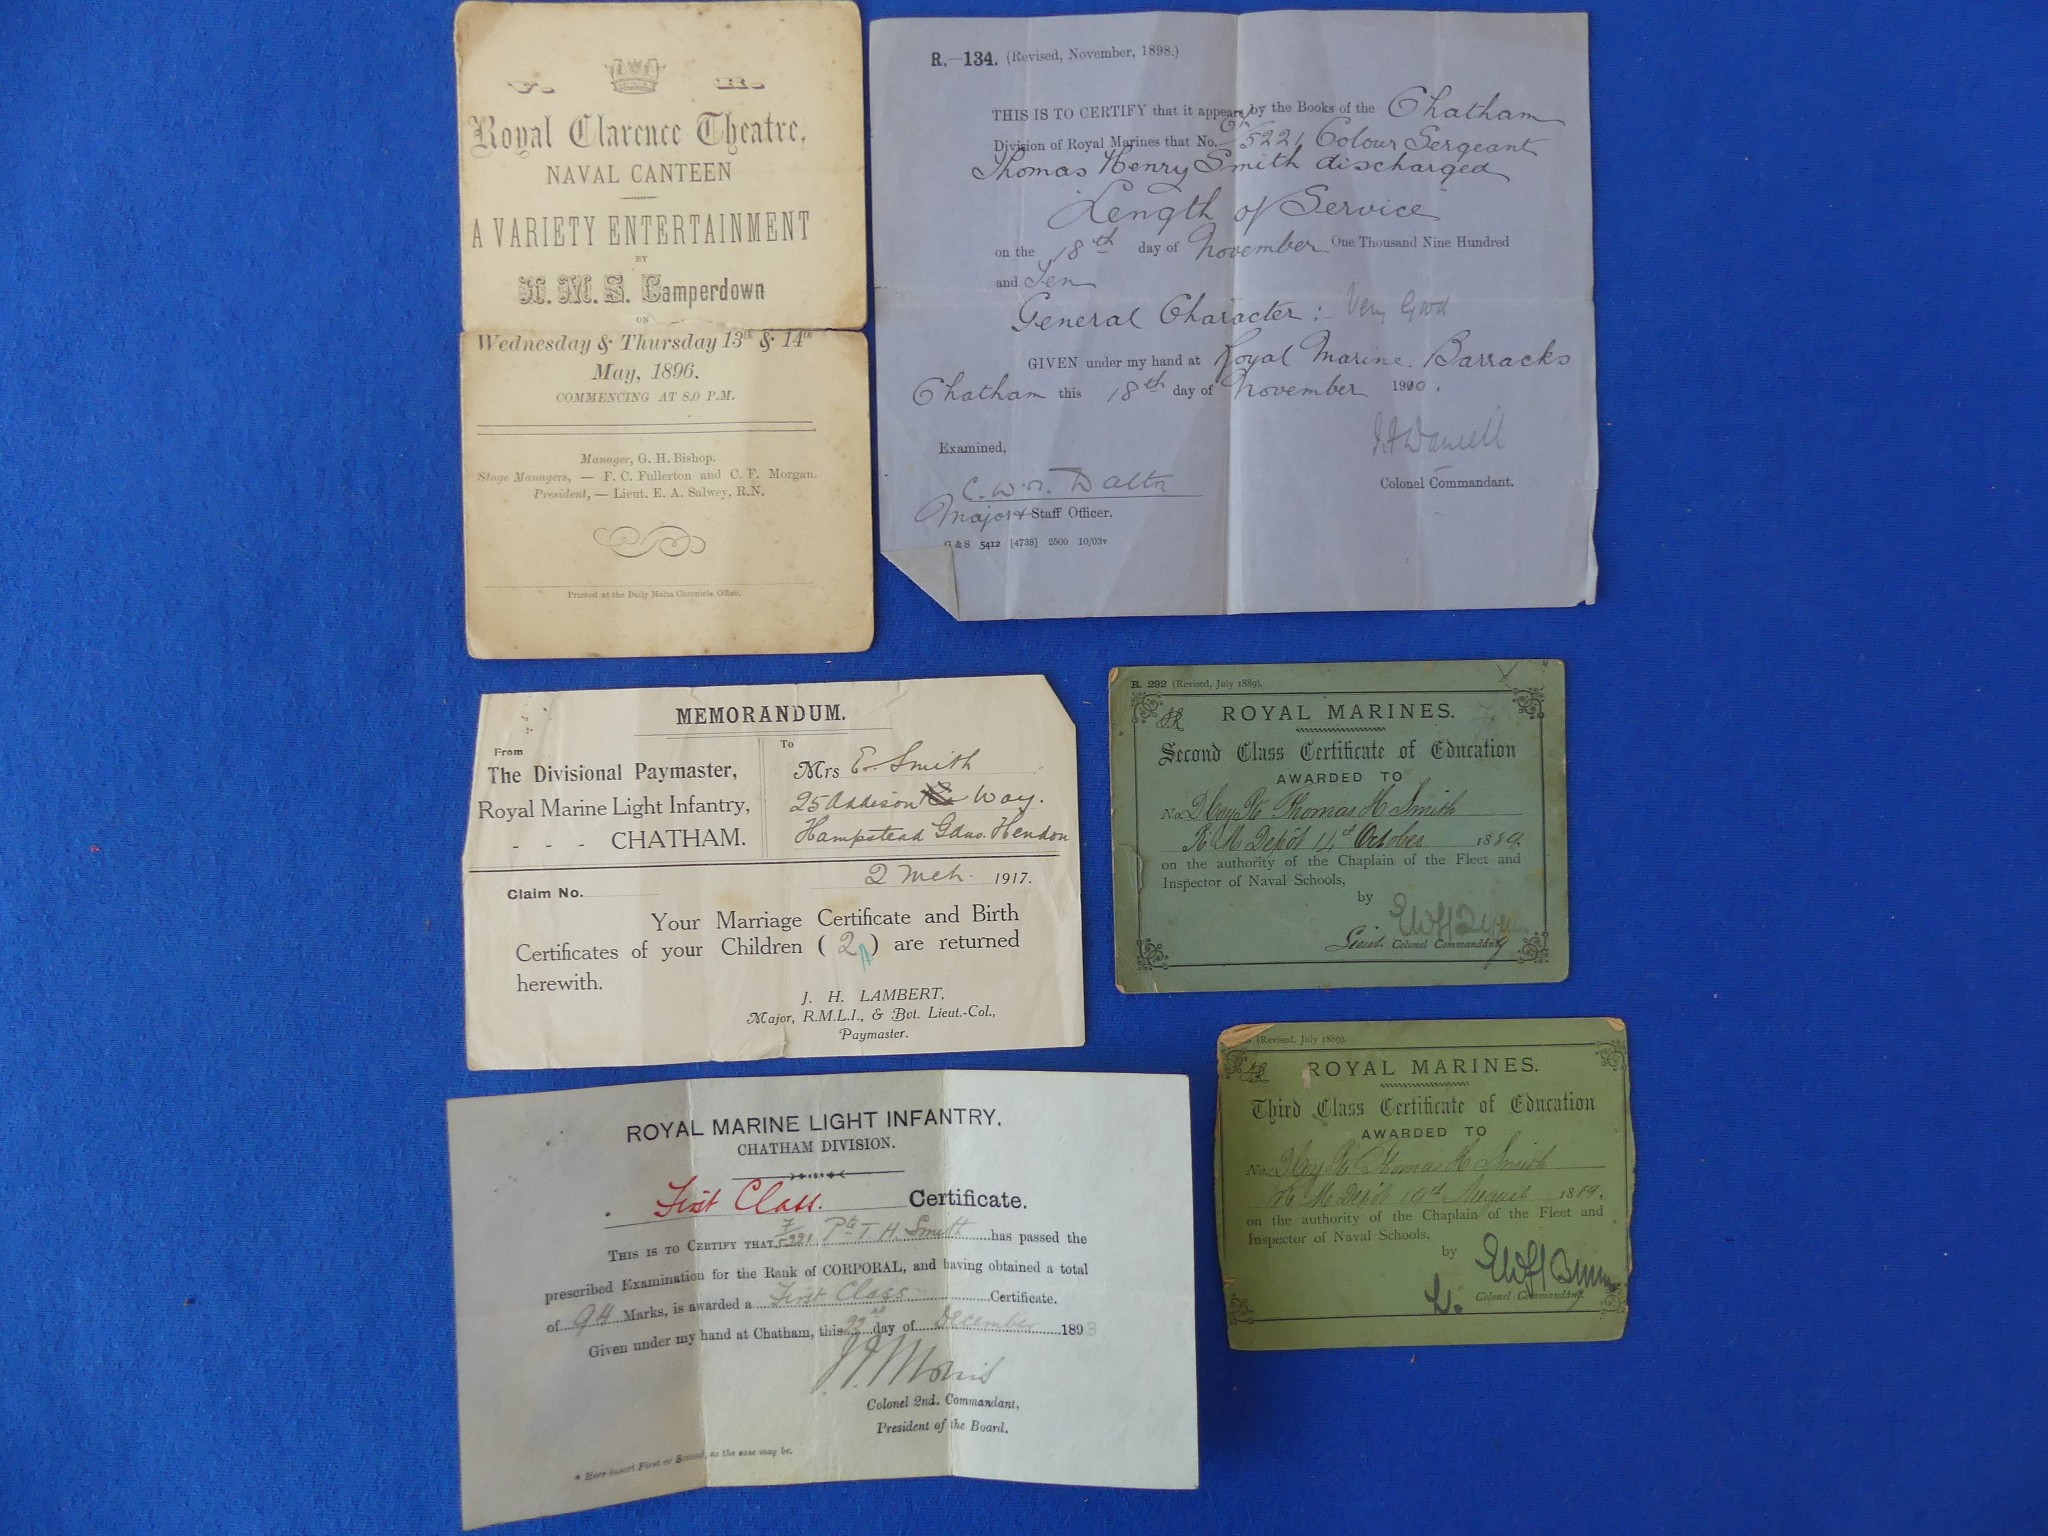 V. R.
Royal Clarence Theatre,
NAVAL CANTEEN
A VARIETY ENTERTAINMENT
BY
H. M. S. Camperdown
ON
Wednesday & Thursday 13th & 14th
May, 1896.
COMMENCING AT 8.0 P.M.
Manager, G. H. Bishop.
Stage Managers, — F. C. Fullerton and C. F. Morgan.
President, — Lieut. E. A. Salwey, R.N.
Printed at the Daily Malta Chronicle Office.
R.—134. (Revised, November, 1898.)
THIS IS TO CERTIFY that it appears by the Books of the Chatham
Division of Royal Marines that No. Ch/5221 Colour Sergeant
Thomas Henry Smith discharged
Length of Service
on the 18th day of November One Thousand Nine Hundred
and Ten
General Character :- Very Good
GIVEN under my hand at Royal Marine Barracks
Chatham this 18th day of November 1910.
Examined,
C. W. Dalton
Colonel Commandant.
Major & Staff Officer.
G & S 5412 [4738] 2500 10/03v
MEMORANDUM.
From
The Divisional Paymaster,
Royal Marine Light Infantry,
- - - CHATHAM.
To
Mrs E. Smith
25 Addison Way.
Hampstead Gdns. Hendon
2 Mch. 1917.
Claim No.
Your Marriage Certificate and Birth
Certificates of your Children ( 2 ) are returned
herewith.
J. H. LAMBERT,
Major, R.M.L.I., & Bvt. Lieut.-Col.,
Paymaster.
R. 292 (Revised, July 1889).
ROYAL MARINES.
Second Class Certificate of Education
AWARDED TO
No. D Coy Pte Thomas H Smith
R M Depôt 14th October 1889.
on the authority of the Chaplain of the Fleet and
Inspector of Naval Schools,
by
Lieut. Colonel Commanding
(Revised, July 1889).
ROYAL MARINES.
Third Class Certificate of Education
AWARDED TO
No. D Coy Pte Thomas H Smith
R M Depôt 19th August 1889.
on the authority of the Chaplain of the Fleet and
Inspector of Naval Schools,
by
L. Colonel Commanding.
ROYAL MARINE LIGHT INFANTRY.
CHATHAM DIVISION.
First Class. Certificate.
THIS IS TO CERTIFY THAT 5221 Pte T. H. Smith has passed the
prescribed Examination for the Rank of CORPORAL, and having obtained a total
of 94 Marks, is awarded a First Class Certificate.
Given under my hand at Chatham, this 22nd day of December 1893
Morris
Colonel 2nd. Commandant,
President of the Board.
* Here insert First or Second, as the case may be.